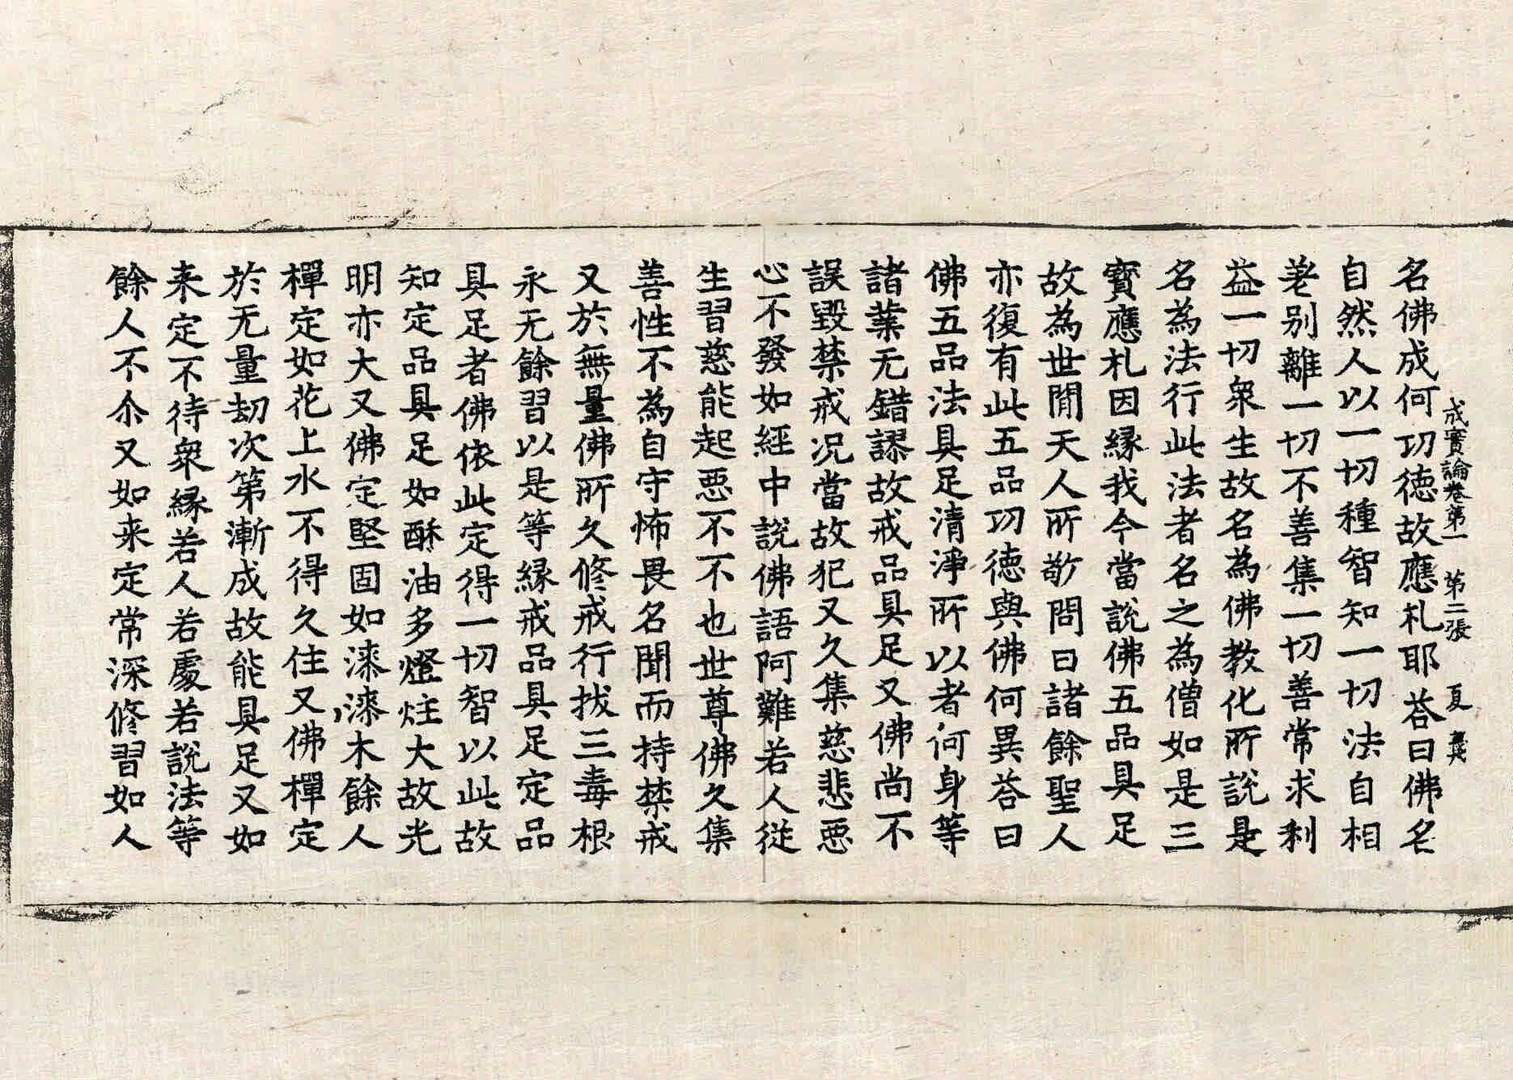 成實論卷第一 第二張 夏
名佛成何功徳故應礼耶荅曰佛名
自然人以一切種智知一切法自相
差别離一切不善集一切善常求利
益一切衆生故名為佛教化所說是
名為法行此法者名之為僧如是三
寳應礼因緣我今當說佛五品具足
故為世閒天人所敬問曰諸餘聖人
亦復有此五品功徳與佛何異荅曰
佛五品法具足清淨所以者何身等
諸業无錯謬故戒品具足又佛尚不
誤毀禁戒况當故犯又久集慈悲惡
心不發如經中說佛語阿難若人從
生習慈能起惡不不也世尊佛久集
善性不為自守怖畏名聞而持禁戒
又於無量佛所久修戒行拔三毒根
永无餘習以是等緣戒品具足定品
具足者佛依此定得一切智以此故
知定品具足如酥油多燈炷大故光
明亦大又佛定堅固如漆漆木餘人
禪定如花上水不得久住又佛禪定
於无量劫次第漸成故能具足又如
来定不待衆緣若人若處若說法等
餘人不尒又如来定常深修習如人